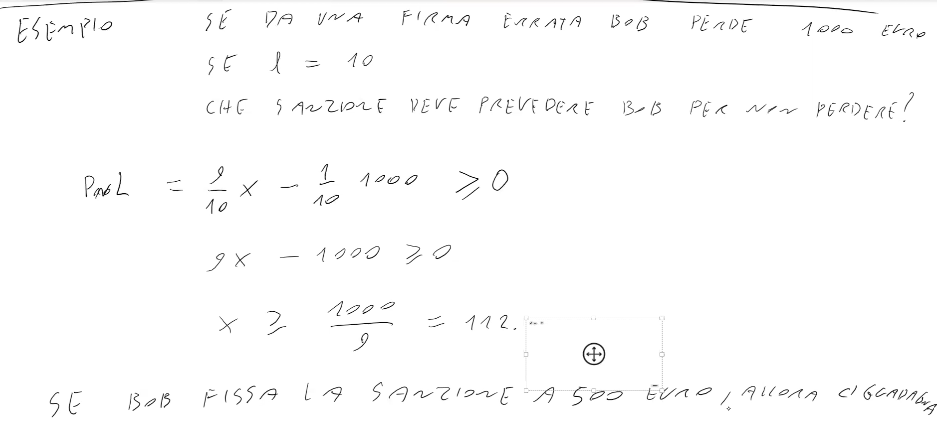 ESEMPIO SE DA UNA FIRMA ERRATA BOB PERDE 1000 EURO
SE l = 10
CHE SANZIONE DEVE PREVEDERE BOB PER NON PERDERE?
= 9/10 x - 1/10 1000 ≥ 0
9x - 1000 ≥ 0
x ≥ 1000/9 = 112.
SE BOB FISSA LA SANZIONE A 500 EURO, ALLORA CI GUADAGNA